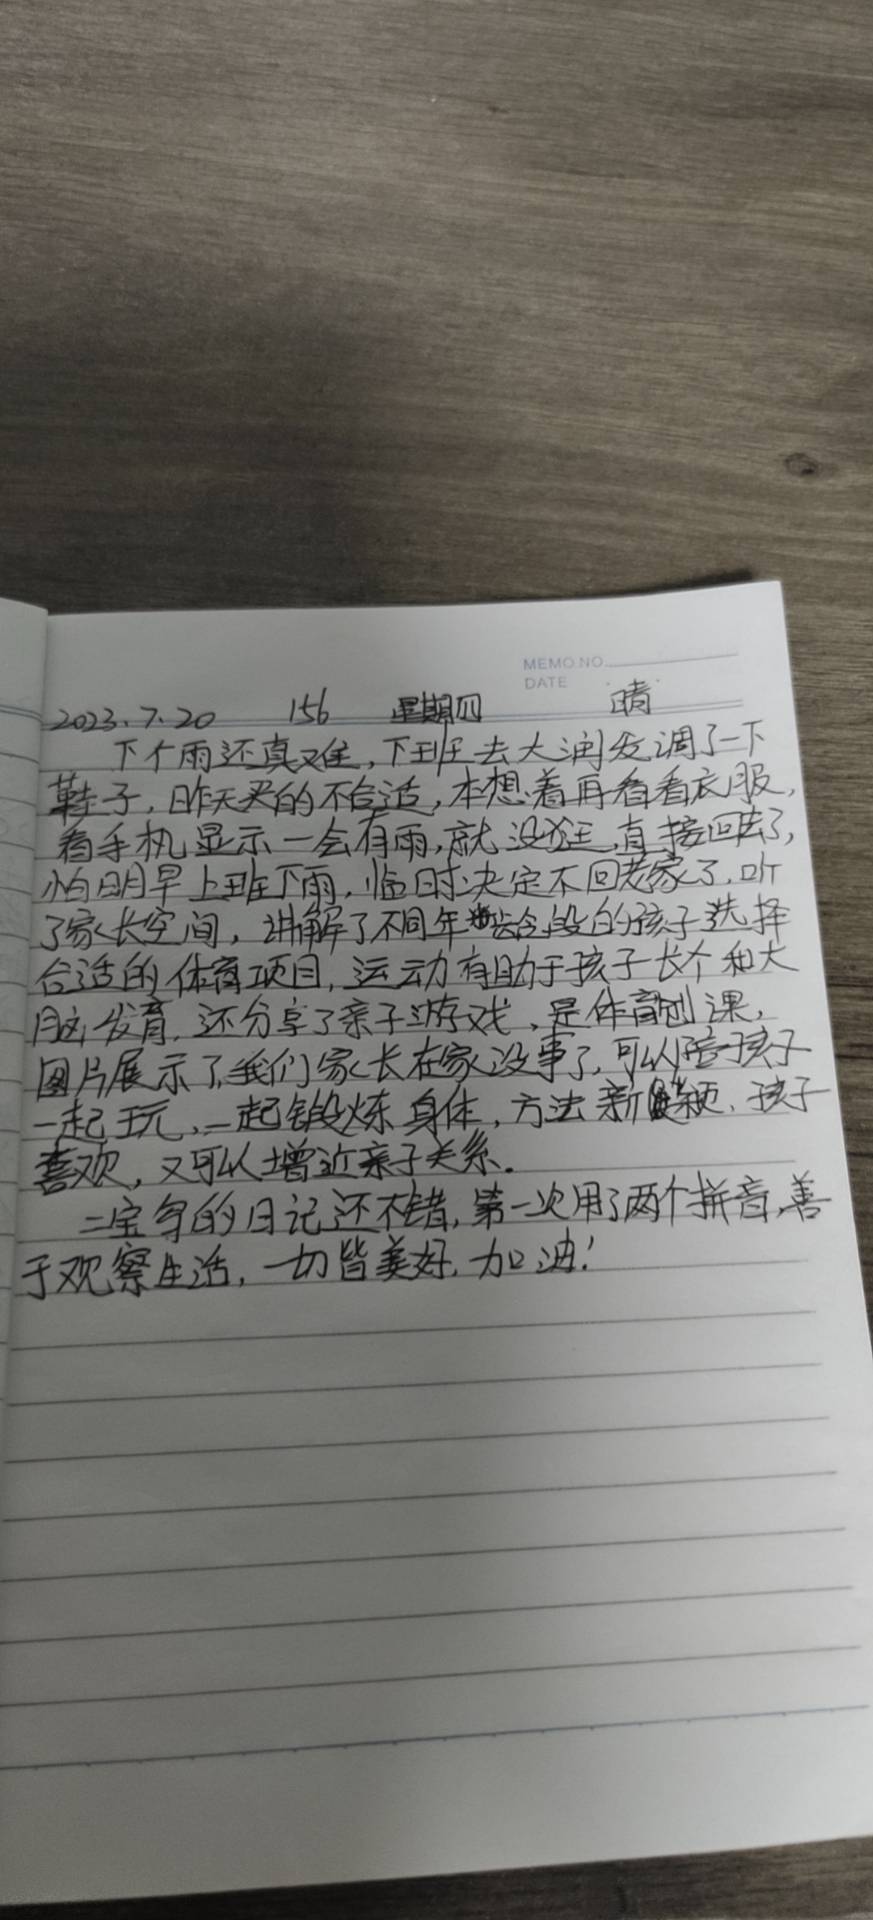 MEMO.NO.
DATE
2023.7.20 156 星期四 晴
下个雨还真难，下班去大润发调了一下
鞋子，昨天买的不合适，本想着再看看衣服，
看手机显示一会有雨，就没逛，直接回去了，
怕明早上班下雨，临时决定不回老家了，听
了家长空间，讲解了不同年龄段的孩子选择
合适的体育项目，运动有助于孩子长个和大
脑发育，还分享了亲子游戏，是体育创课，
图片展示了，我们家长在家没事了，可以陪孩子
一起玩，一起锻炼身体，方法新颖，孩子
喜欢，又可以增近亲子关系。
二宝写的日记还不错，第一次用了两个拼音，善
于观察生活，一切皆美好，加油！